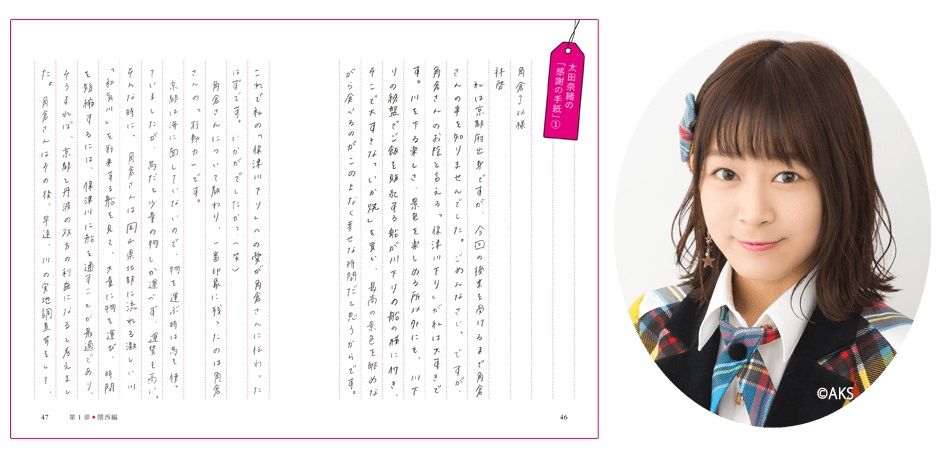 太田奈緒の
「感謝の手紙」①
角倉了以様
拝啓
私は京都府出身ですが、今回の授業を受けるまで角倉
さんの事を知りませんでした。ごめんなさい。ですが、
角倉さんのお陰と言える「保津川下り」が私は大すきで
す。川を下る楽しさ、景色を楽しめる所以外にも、川下
りの終盤でご飯を販売する船が川下りの船の横に付き、
そこで大すきな「いか焼」を買い、最高の景色を眺めな
がら食べるのがこの上なく幸せな時間だと思うからです。
46
これで私の「保津川下り」への愛が角倉さんに伝わった
はずです。いかがでしたか？（笑）
角倉さんについて教わり、一番印象に残ったのは角倉
さんの「行動力」です。
京都は海に面していないので、物を運ぶ時は馬を使っ
ていましたが、馬だと少量の物しか運べず、運賃も高い。
そんな時に、角倉さんは岡山県北部に流れる激しい川
「和気川」を行き来する船を見て、大量に物を運び、時間
を短縮するには、保津川に船を通すことが最適であり、
そうすれば、京都と丹波の双方の利益になると考えまし
た。角倉さんはその後、早速、川の実地調査等をして、
47 第1章◆関西編
©AKS